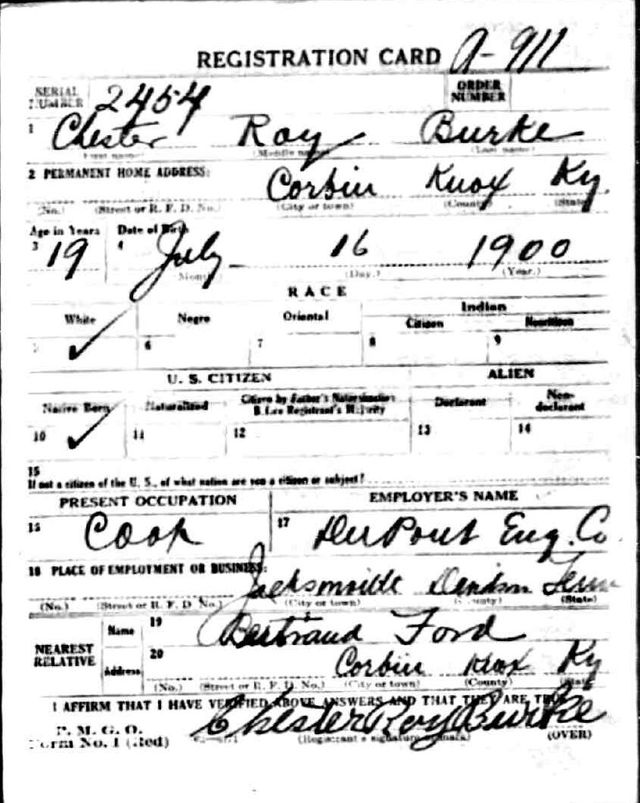 REGISTRATION CARD A-911
SERIAL NUMBER 2454 ORDER NUMBER
1 Chester Roy Burke
(First name) (Middle name) (Last name)
2 PERMANENT HOME ADDRESS:
Corbin Knox Ky.
(No.) (Street or R. F. D. No.) (City or town) (County) (State)
Age in Years Date of Birth
3 19 4 July 16 1900
(Month.) (Day.) (Year.)
RACE
White Negro Oriental Indian
Citizen Noncitizen
5 ✓ 6 7 8 9
U. S. CITIZEN ALIEN
Native Born Naturalized Citizen by Father's Naturalization Before Registrant's Majority Declarant Non-declarant
10 ✓ 11 12 13 14
15
If not a citizen of the U. S., of what nation are you a citizen or subject?
PRESENT OCCUPATION EMPLOYER'S NAME
16 17 DuPont Eng. Co.
18 PLACE OF EMPLOYMENT OR BUSINESS:
Jacksonville Tenn
(No.) (Street or R. F. D. No.) (City or town) (County) (State)
NEAREST RELATIVE
Name 19 Bertraud Ford
Address 20 Corbin Knox Ky
(No.) (Street or R. F. D. No.) (City or town) (County) (State)
I AFFIRM THAT I HAVE VERIFIED ABOVE ANSWERS AND THAT THEY ARE TRUE
P. M. G. O.
Form No. 1 (Red) Chester Roy Burke
(Registrant's signature or mark) (OVER)